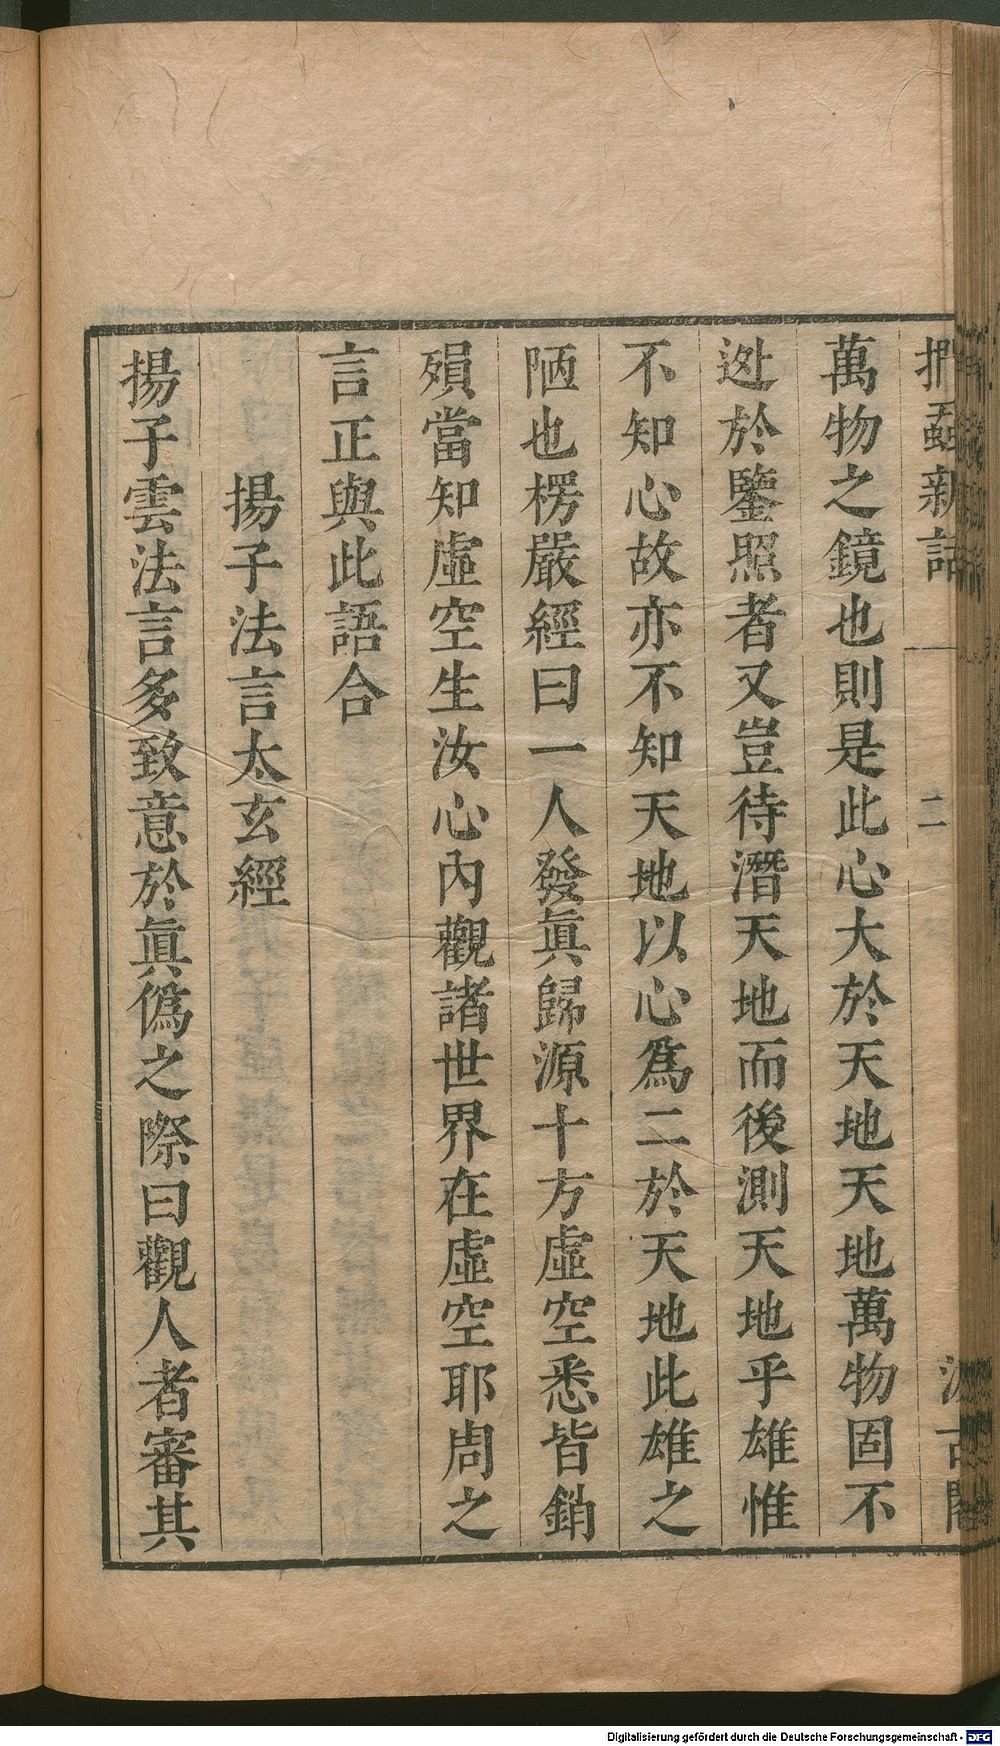 捫蝨新話
二
汲古閣
萬物之鏡也則是此心大於天地天地萬物固不
逃於鑒照者又豈待潛天地而後測天地乎雄惟
不知心故亦不知天地以心爲二於天地此雄之
陋也楞嚴經曰一人發眞歸源十方虛空悉皆銷
殞當知虛空生汝心內觀諸世界在虛空耶周之
言正與此語合
揚子法言太玄經
揚子雲法言多致意於眞僞之際曰觀人者審其
Digitalisierung gefördert durch die Deutsche Forschungsgemeinschaft - DFG